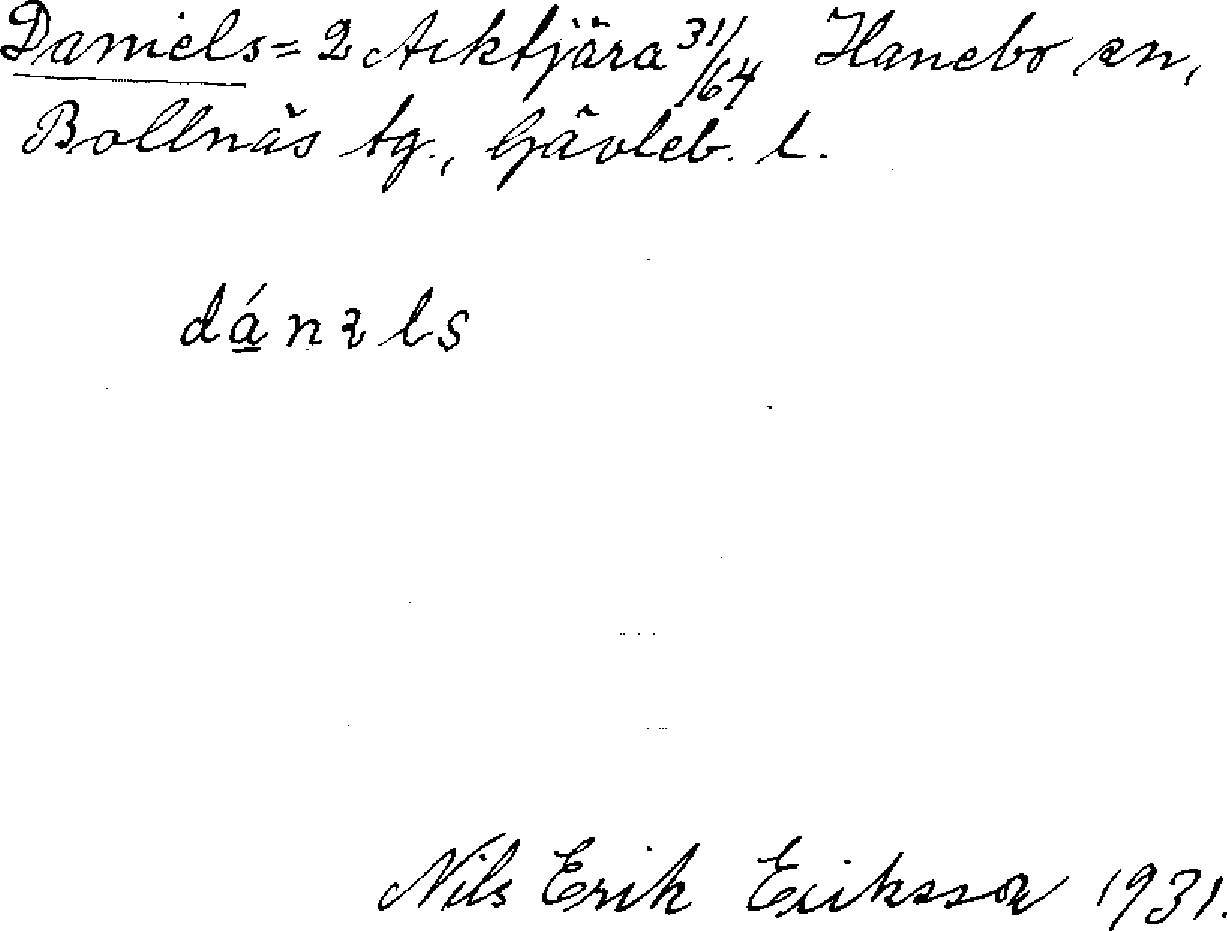 Daniels = 2 Arktjära 31/64 Hanebo sn,
Bollnäs tg., Gävleb. l.
dánɛls
Nils Erik Eriksson 1931.